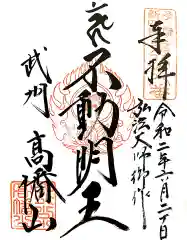 奉拝
令和二年六月二丁日
弘法大師御作
不動明王
武州
高幡山